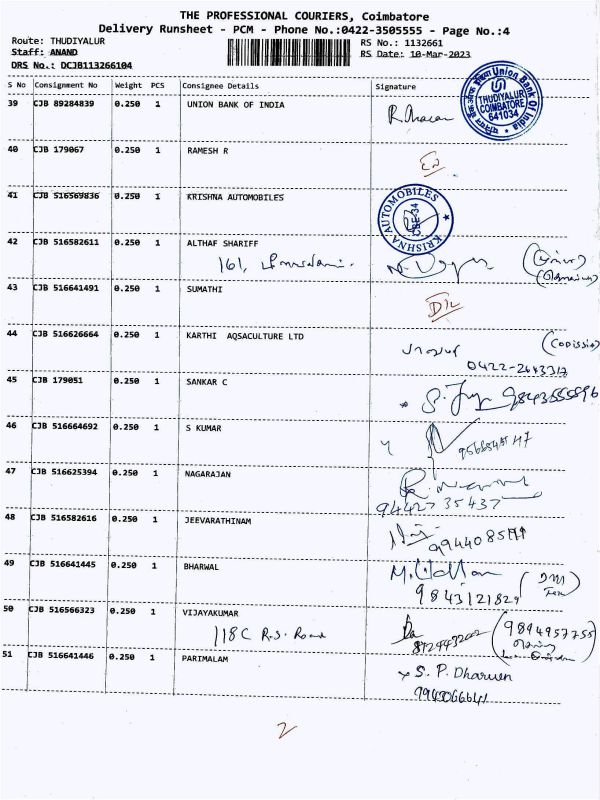 THE PROFESSIONAL COURIERS, Coimbatore
Delivery Runsheet - PCM - Phone No.:0422-3505555 - Page No.:4
Route: THUDIYALUR RS No.: 1132661
Staff: ANAND RS Date: 10-Mar-2023
DRS No.: DCJB113266104
S No Consignment No Weight PCS Consignee Details Signature
39 CJB 89284839 0.250 1 UNION BANK OF INDIA
Union Bank Of India
THUDIYALUR
COIMBATORE
641034
40 CJB 179067 0.250 1 RAMESH R
41 CJB 516569836 0.250 1 KRISHNA AUTOMOBILES
KRISHNA AUTOMOBILES
CBE-34
42 CJB 516582611 0.250 1 ALTHAF SHARIFF
161,
43 CJB 516641491 0.250 1 SUMATHI
D/L
44 CJB 516626664 0.250 1 KARTHI AQSACULTURE LTD
(Codissia)
45 CJB 179051 0.250 1 SANKAR C
46 CJB 516664692 0.250 1 S KUMAR
47 CJB 516625394 0.250 1 NAGARAJAN
94427 35437
48 CJB 516582616 0.250 1 JEEVARATHINAM
49 CJB 516641445 0.250 1 BHARWAL
9843121829
50 CJB 516566323 0.250 1 VIJAYAKUMAR
118C R.S. Road
9894957755
51 CJB 516641446 0.250 1 PARIMALAM
S. P. Dharun
2